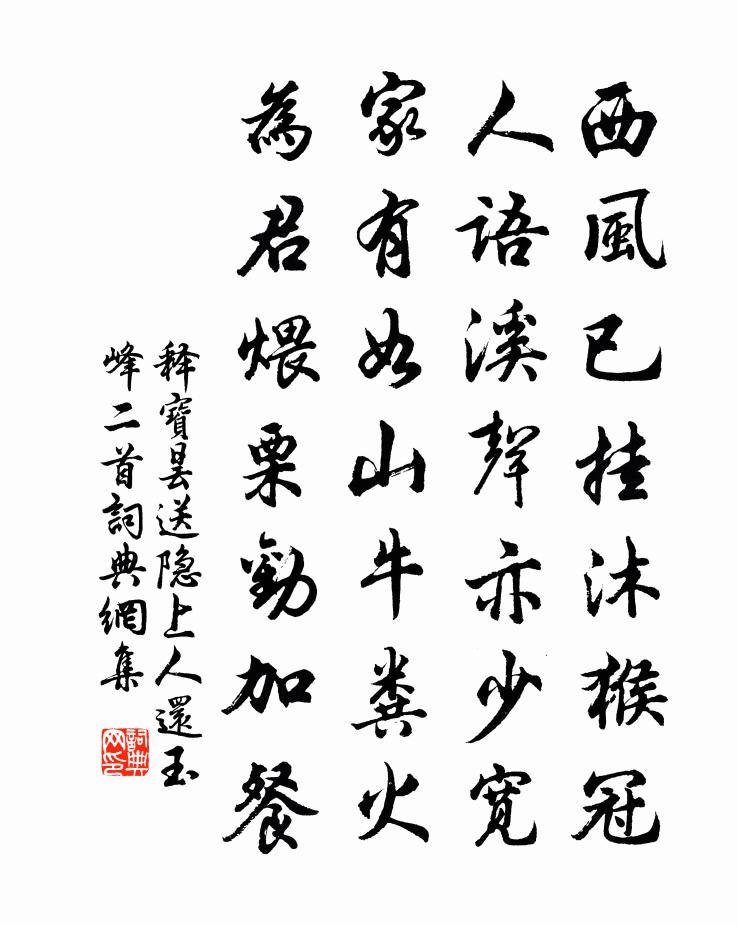 西風已挂沐猴冠
人語溪聲亦少寬
家有如山牛糞火
為君煨栗勸加餐
释寶曇送隐上人還玉
峰二首詞典網集
詞典
网印